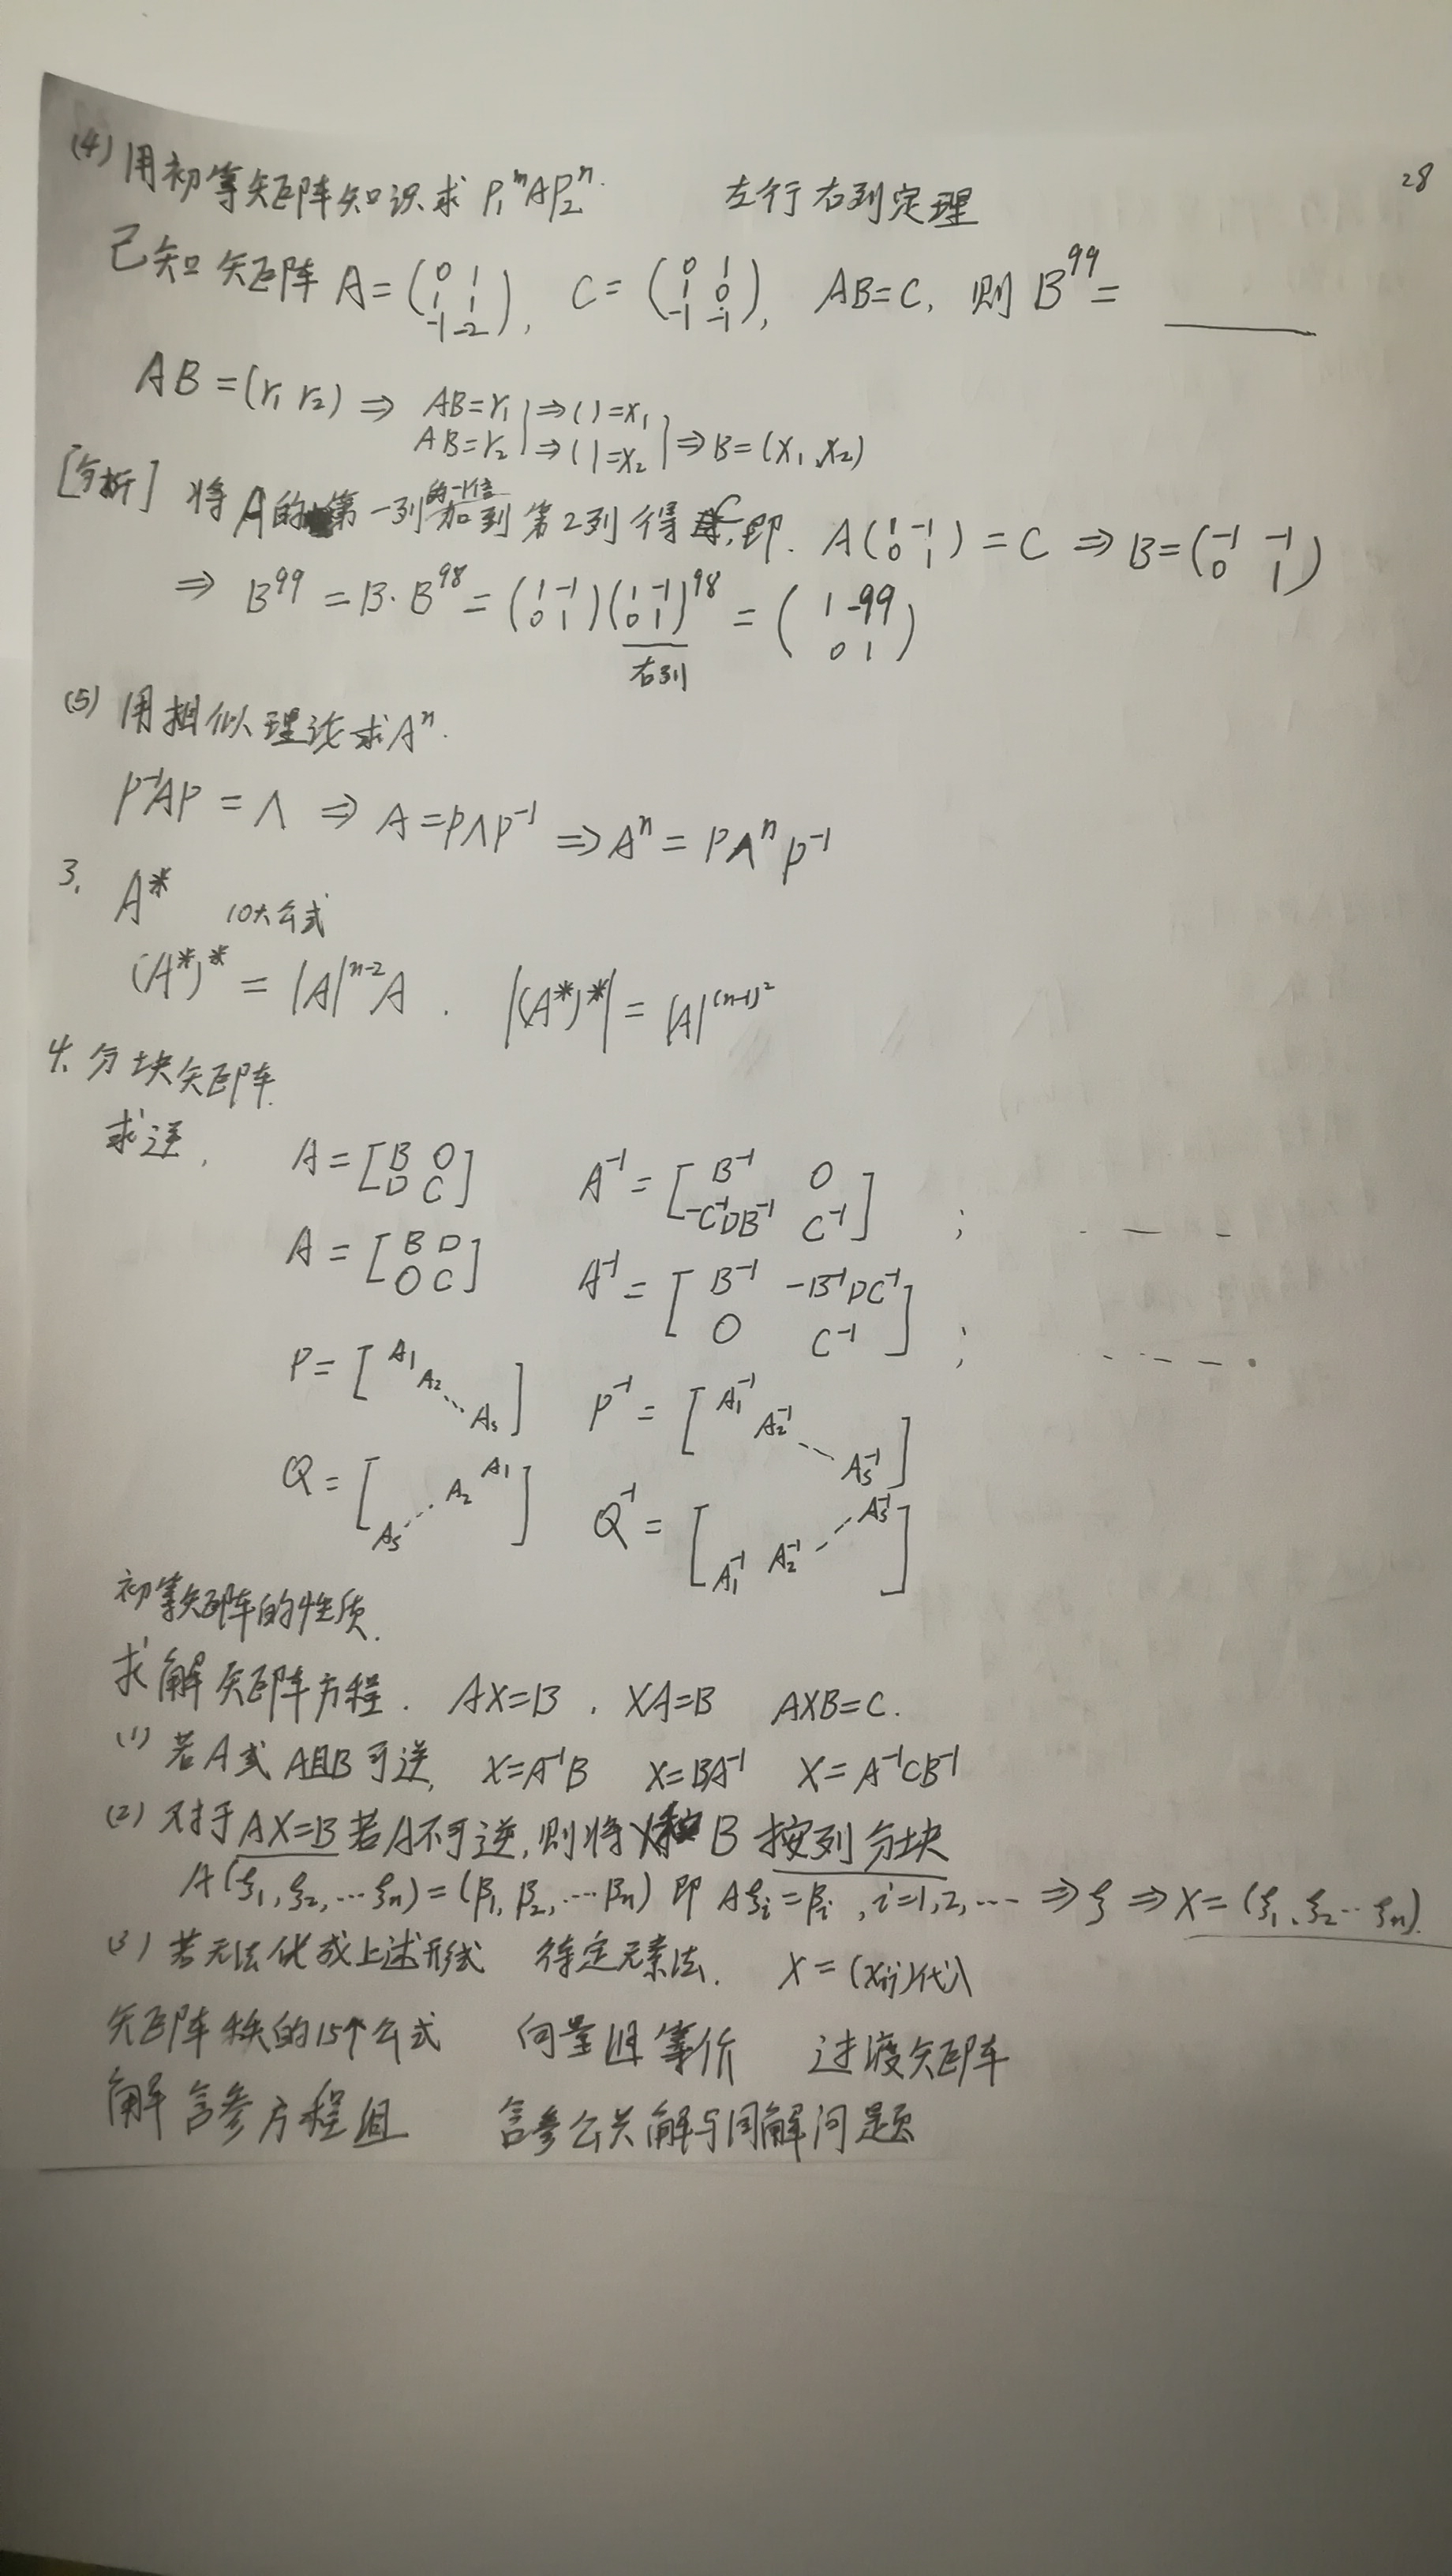 28
(4) 用初等矩阵知识求 P₁ᵐAP₂ⁿ. 左行右列定理
已知矩阵 A = (0 1; 1 1; -1 -2), C = (0 1; 1 0; -1 -1), AB=C, 则 B⁹⁹ = ____
AB = (r₁ r₂) ⇒ AB=r₁ ⇒ ( )=x₁
AB=r₂ ⇒ ( )=x₂ ⇒ B=(x₁, x₂)
[分析] 将A的第一列的-1倍加到第2列得C, 即. A(1 -1; 0 1) = C ⇒ B=(-1 -1; 0 1)
⇒ B⁹⁹ = B·B⁹⁸ = (1 -1; 0 1)(1 -1; 0 1)⁹⁸ = (1 -99; 0 1)
右列
(5) 用相似理论求Aⁿ.
P⁻¹AP = Λ ⇒ A = PΛP⁻¹ ⇒ Aⁿ = PΛⁿP⁻¹
3. A* 10大公式
(A*)* = |A|ⁿ⁻²A . |(A*)*| = |A|^(n-1)²
4. 分块矩阵.
求逆, A = [B O; D C] A⁻¹ = [B⁻¹ O; -C⁻¹DB⁻¹ C⁻¹] ; - — - -
A = [B D; O C] A⁻¹ = [B⁻¹ -B⁻¹DC⁻¹; O C⁻¹] ; - - - — .
P = [A₁ A₂ ⋱ Aₛ] P⁻¹ = [A₁⁻¹ A₂⁻¹ ⋱ Aₛ⁻¹]
Q = [A₁ A₂ ⋰ Aₛ] Q⁻¹ = [Aₛ⁻¹ ⋰ A₂⁻¹ A₁⁻¹]
初等矩阵的性质.
求解矩阵方程. AX=B . XA=B AXB=C.
(1) 若A或A且B可逆, X=A⁻¹B X=BA⁻¹ X=A⁻¹CB⁻¹
(2) 对于AX=B若A不可逆, 则将X和B 按列分块
A(ξ₁, ξ₂, … ξₙ) = (β₁, β₂, … βₙ) 即 Aξᵢ=βᵢ, i=1,2,… ⇒ ξ ⇒ X=(ξ₁, ξ₂ … ξₙ).
(3) 若无法化成上述形式 待定元素法. X = (xᵢⱼ)代入
矩阵秩的15个公式 向量组等价 过渡矩阵
解含参方程组 含参公共解与同解问题